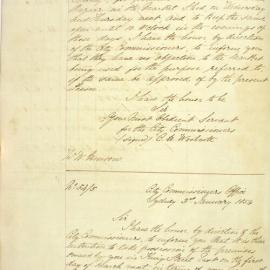 Repair in the Market Shed on Wednesday
and Thursday next, and to keep the same
open until 10 O'clock in the evening of
those days, I have the honor by direction
of the City Commissioners, to inform you
that they have no objection to the Market
being used for the purpose referred to,
if the same be approved of by the present
Lessee.
I have the honor to be
Sir
Your Most Obedient Servant
for the City Commissioners
(signed) C. H. Woolcott
Mr W.
No 54/5
City Commissioners Office
Sydney 3rd January 1854
Sir
I have the honor, by direction of the
City Commissioners, to inform you that it is their
intention to take possession of the premises
rented by you in King Street East on the first
day of March next, in